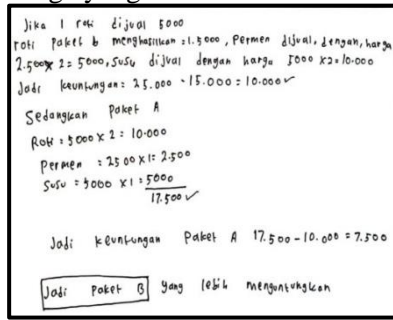 Jika 1 roti dijual 5000
roti Paket b menghasilkan = 1.5000, Permen dijual, dengan, harga
2.500 x 2 = 5000, susu dijual dengan harga 5000 x2 = 10.000
Jadi keuntungan = 25.000 - 15.000 = 10.000 ✓
Sedangkan Paket A
Roti = 5000 x 2 = 10.000
Permen = 2500 x 1 = 2.500
Susu = 5000 x 1 = 5000
17.500 ✓
Jadi keuntungan Paket A 17.500 - 10.000 = 7.500
Jadi Paket B yang lebih menguntungkan